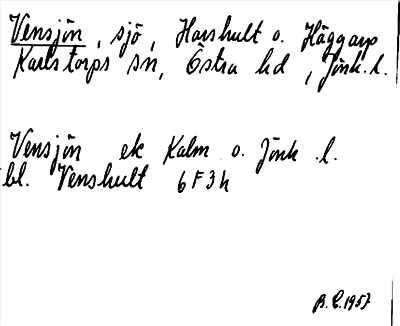 Vensjön, sjö, Harshult o. Häggarp
Karlstorps sn, Östra hd, Jönk. l.
Vensjön ek Kalm o. Jönk. l.
bl. Venshult 6F3h
B. E. 1957